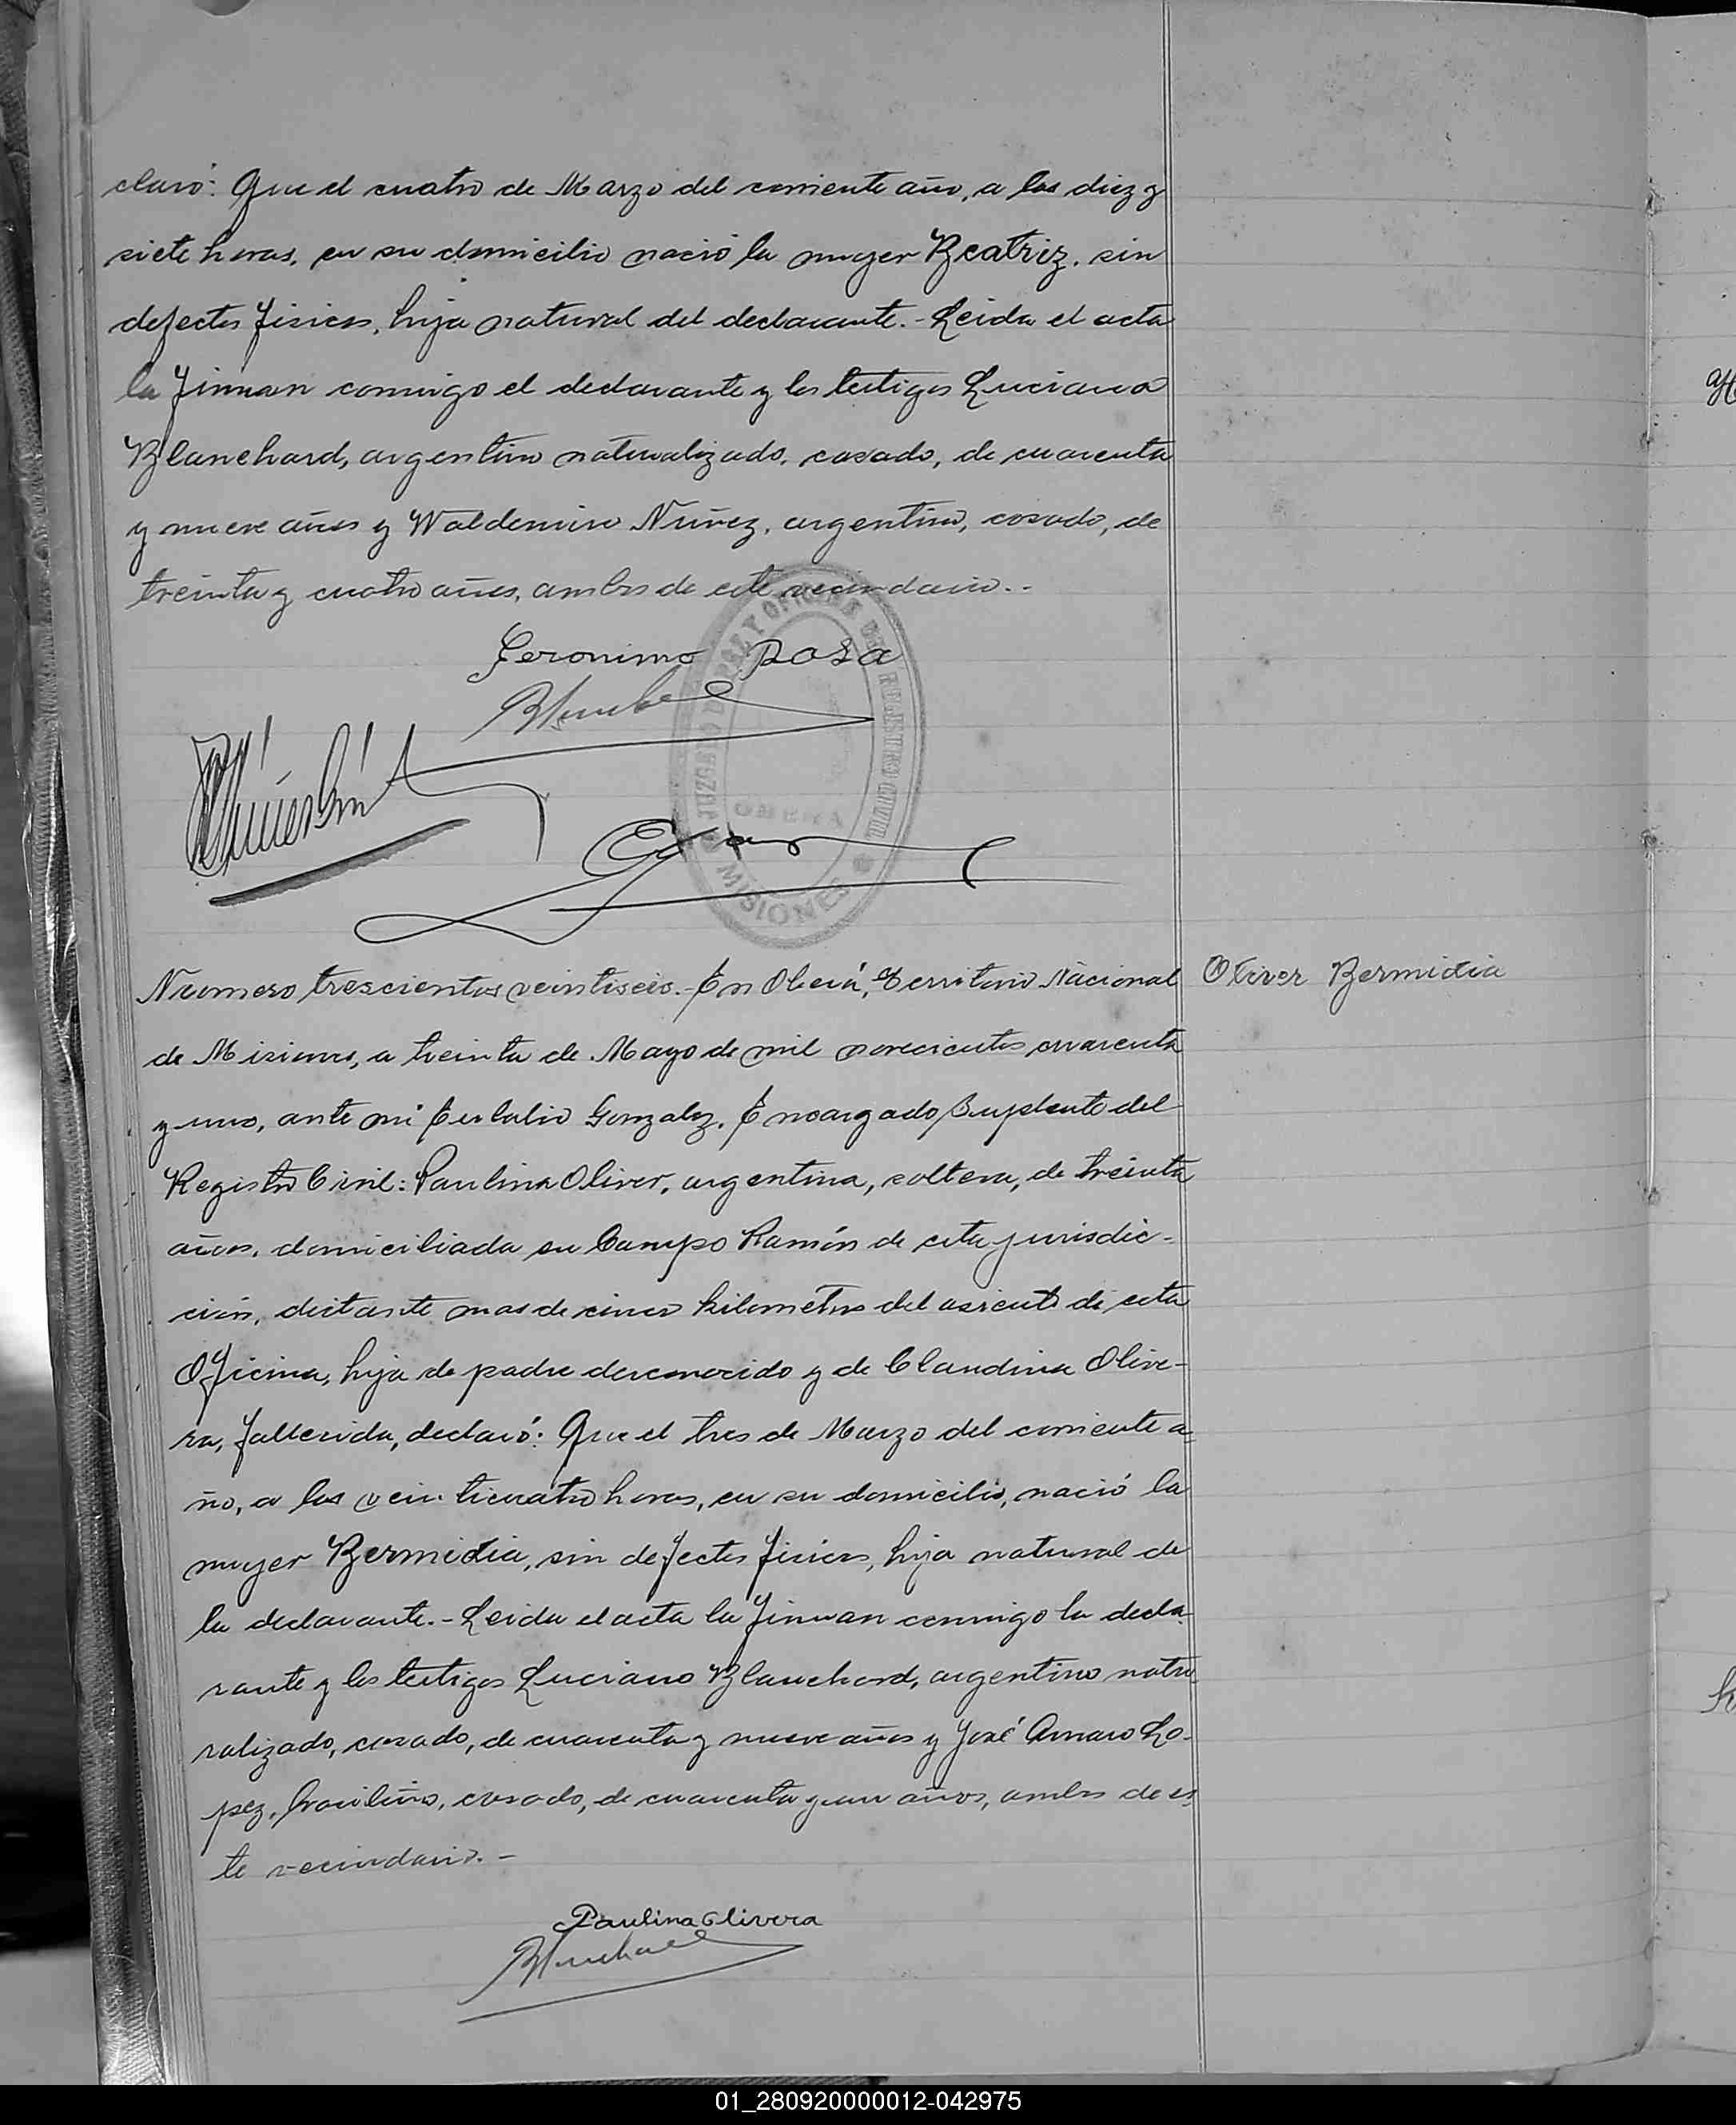 claró: Que el cuatro de Marzo del corriente año, a las diez y
siete horas, en su domicilio nació la mujer Beatriz, sin
defectos fisicos, hija natural del declarante.- Leida el acta
la firman conmigo el declarante y los testigos Luciano
Blanchard, argentino naturalizado, casado, de cuarenta
y nueve años y Waldemiro Nuñez, argentino, casado, de
treinta y cuatro años, ambos de este vecindario.-
Geronimo Rosa
JUZGADO DE PAZ Y OFICINA DEL REGISTRO CIVIL
OBERA
MISIONES
Numero trescientos veintiseis.- En Oberá, Territorio Nacional
Oliver Bermidia
de Misiones, a treinta de Mayo de mil novecientos cuarenta
y uno, ante mi Eulalio Gonzalez, Encargado Suplente del
Registro Civil: Paulina Oliver, argentina, soltera, de treinta
años, domiciliada en Campo Ramón de esta jurisdic-
ción, distante mas de cinco kilometros del asiento de esta
Oficina, hija de padre desconocido y de Claudina Olive-
ra, fallecida, declaró: Que el tres de Marzo del corriente a
ño, a las veinticuatro horas, en su domicilio, nació la
mujer Bermidia, sin defectos fisicos, hija natural de
la declarante.- Leida el acta la firman conmigo la decla
rante y los testigos Luciano Blanchard, argentino natu
ralizado, casado, de cuarenta y nueve años y José Amaro Lo-
pez, brasileño, casado, de cuarenta y un años, ambos de es
te vecindario.-
Paulina Olivera
01_280920000012-042975